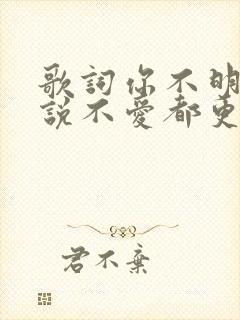 歌詞你不明
說不愛都更
君不棄